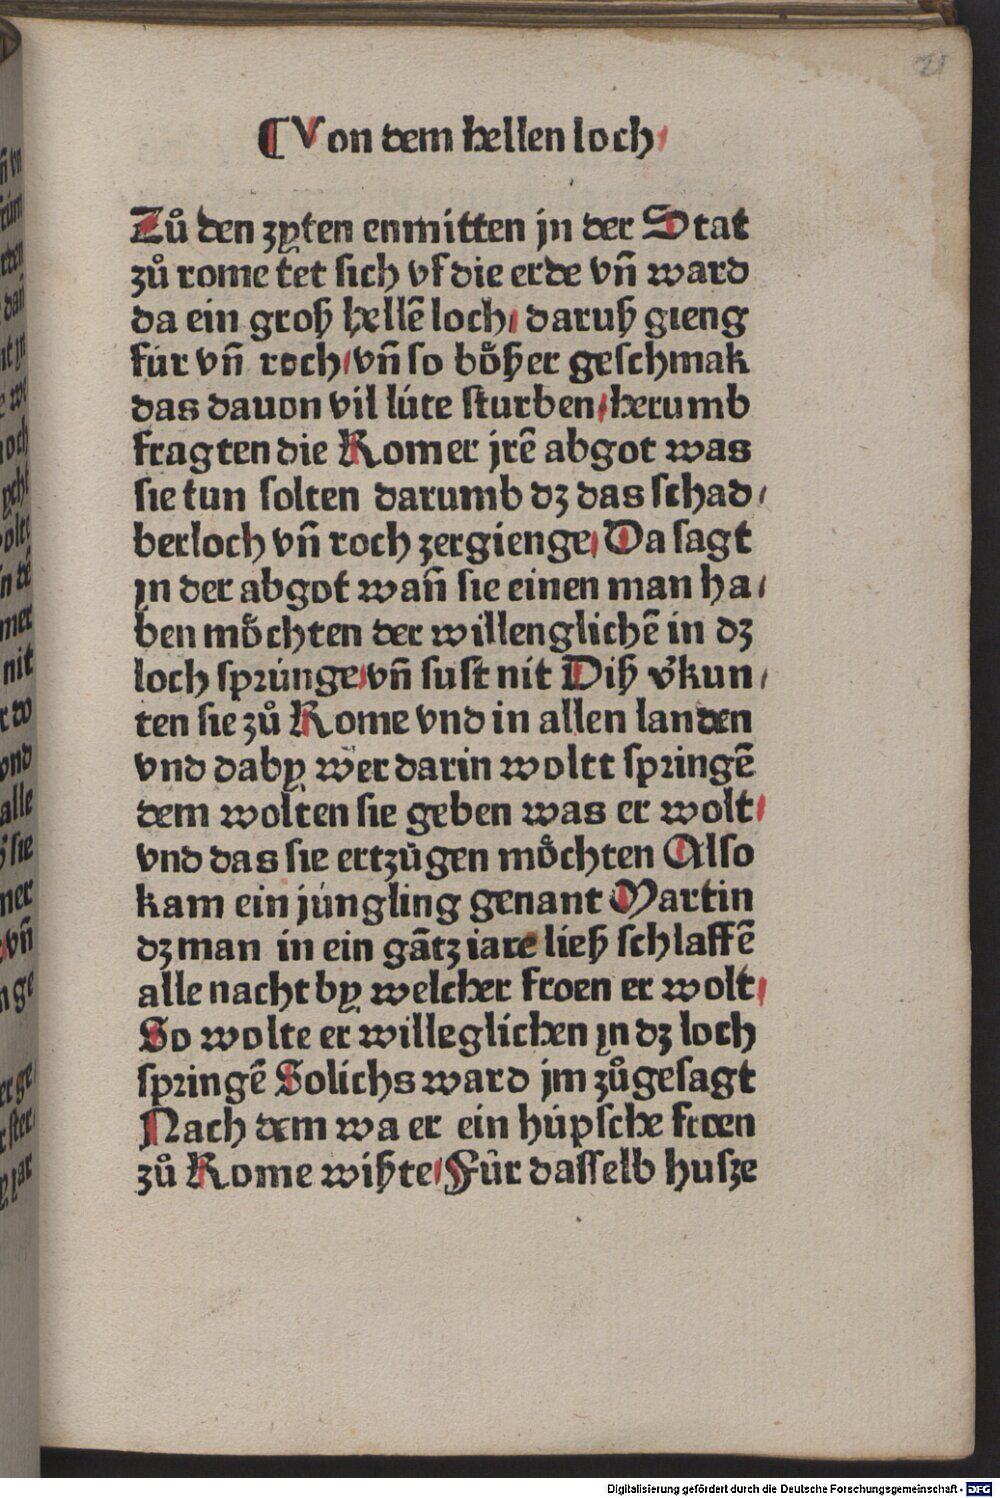 21
¶Von dem hellen loch/
Zů den zyten enmitten jn der Stat
zů rome tet sich vf die erde vn̄ ward
da ein groß hellē loch/ daruß gieng
fúr vn̄ roch/ vn̄ so bo̊ßer geschmak
das dauon vil lúte sturben/ herumb
fragten die Romer jrē abgot was
sie tun solten darumb dz das schad/
berloch vn̄ roch zergienge/ Da sagt
jn der abgot wan̄ sie einen man ha/
ben mo̊chten der willenglichē in dz
loch sprúnge/ vn̄ sust nit Diß v̉kun/
ten sie zů Rome vnd in allen landen
vnd daby wer darin woltt springē
dem wolten sie geben was er wolt/
vnd das sie ertzúgen mo̊chten Also
kam ein júngling genant Martin
dz man in ein gātz iare ließ schlaffē
alle nacht by welcher froen er wolt/
So wolte er willeglichen jn dz loch
springē Solichs ward jm zůgesagt
Nach dem wa er ein húpsche froen
zů Rome wißte/ Fúr dasselb husze
Digitalisierung gefördert durch die Deutsche Forschungsgemeinschaft - DFG